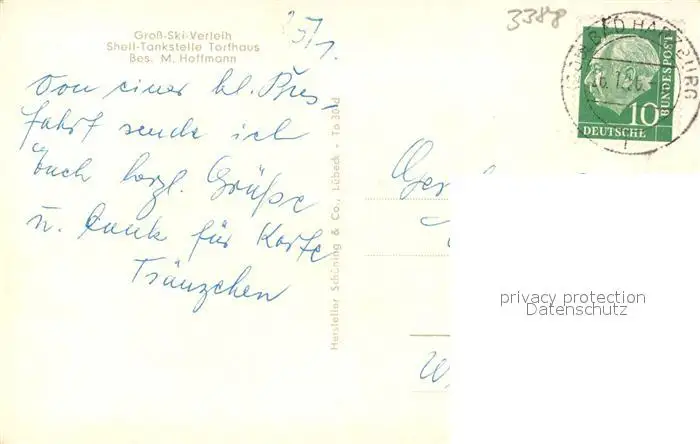 Groß-Ski-Verleih
Shell-Tankstelle Torfhaus
Bes. M. Hoffmann
25/1.
3388
Von einer kl. Bus-
fahrt sende ich
Euch herzl. Grüße
u. Dank für Karte
Fränzchen
Hersteller Schöning & Co., Lübeck · To 30 d
BAD HARZBURG
26.1.56.
10
DEUTSCHE
BUNDESPOST
W
privacy protection
Datenschutz